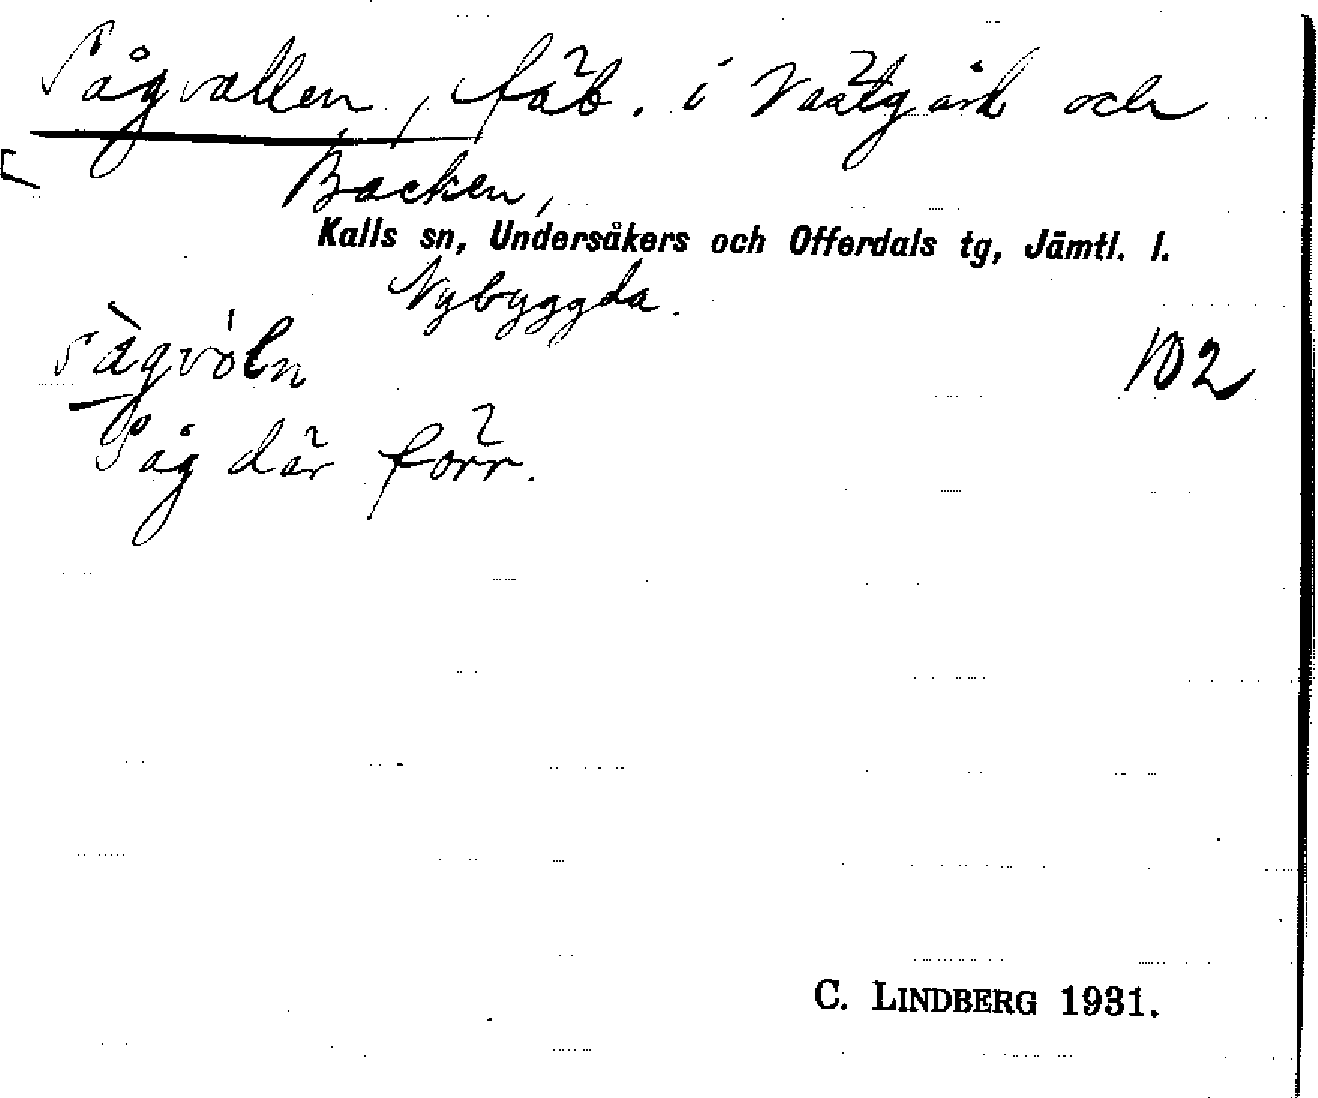 Sågvallen, fäb. i Västgård och
Backen,
Kalls sn, Undersåkers och Offerdals tg, Jämtl. l.
Nybyggda.
sàgvóln
102
Såg där förr.
C. LINDBERG 1931.